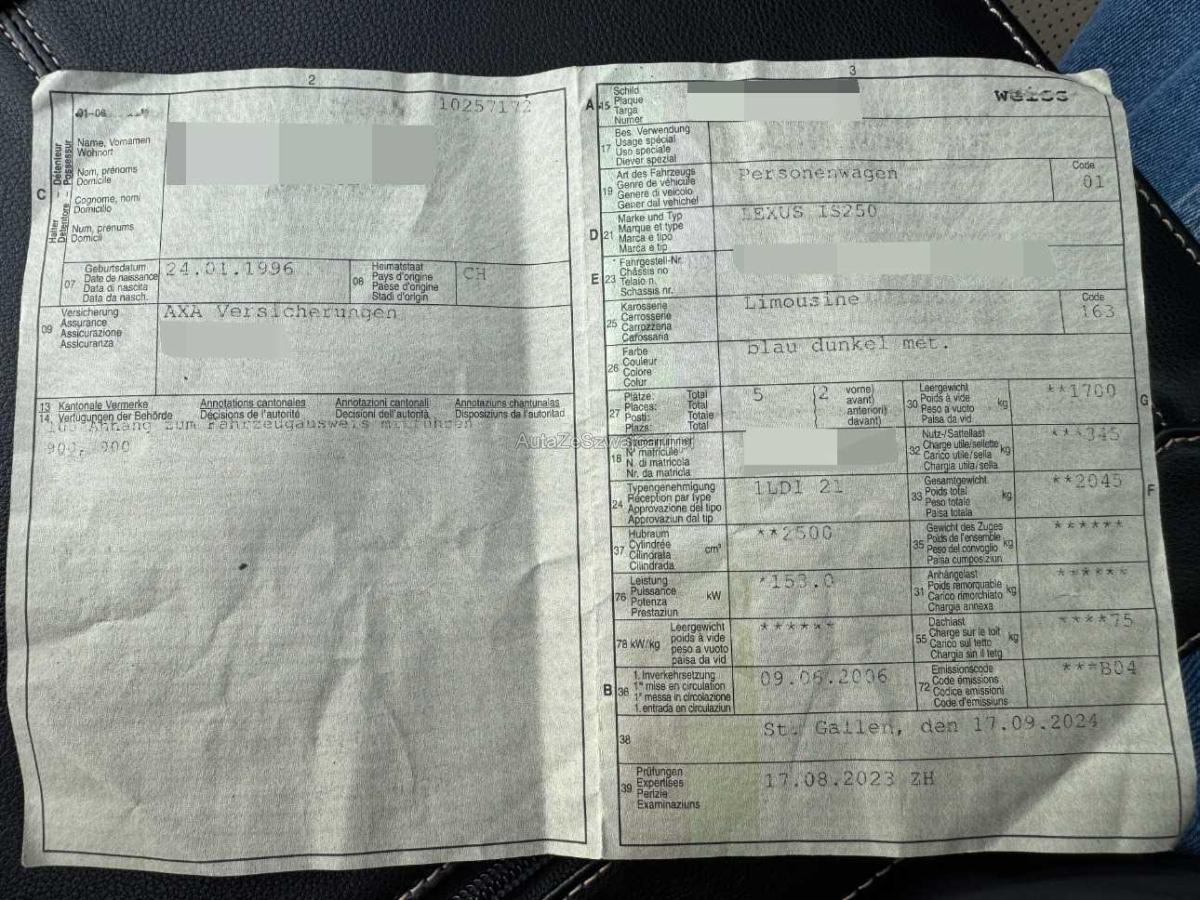 2
10257172
01-06
C
Halter
Détenteur
Detentore
Possessur
Name, Vornamen
Wohnort
Nom, prénoms
Domicile
Cognome, nomi
Domicilio
Num, prenums
Domicil
07
Geburtsdatum
Date de naissance
Data di nascita
Data da nasch.
24.01.1996
08
Heimatstaat
Pays d'origine
Paese d'origine
Stadi d'origin
CH
09
Versicherung
Assurance
Assicurazione
Assicuranza
AXA Versicherungen
13 Kantonale Vermerke Annotations cantonales Annotazioni cantonali Annotaziuns chantunalas
14 Verfügungen der Behörde Décisions de l'autorité Decisioni dell'autorità Disposiziuns da l'autoritad
Anhang zum Fahrzeugausweis mitführen
900, 900
3
A 15
Schild
Plaque
Targa
Numer
weiss
17
Bes. Verwendung
Usage spécial
Uso speciale
Diever spezial
19
Art des Fahrzeugs
Genre de véhicule
Genere di veicolo
Gener dal vehichel
Personenwagen
Code
01
D 21
Marke und Typ
Marque et type
Marca e tipo
Marca e tip
LEXUS IS250
E 23
Fahrgestell-Nr.
Châssis no
Telaio n.
Schassis nr.
25
Karosserie
Carrosserie
Carrozzeria
Carossaria
Limousine
Code
163
26
Farbe
Couleur
Colore
Colur
blau dunkel met.
27
Plätze: Total
Places: Total
Posti: Totale
Plazs: Total
5
(2 vorne)
avant)
anteriori)
davant)
G
30
Leergewicht
Poids à vide
Peso a vuoto
Paisa da vid
kg
**1700
18
Stammnummer
N° matricule
N. di matricola
Nr. da matricla
32
Nutz-/Sattellast
Charge utile/sellette
Carico utile/sella
Chargia utila/sella
kg
***345
24
Typengenehmigung
Réception par type
Approvazione del tipo
Approvaziun dal tip
1LD1 21
F
33
Gesamtgewicht
Poids total
Peso totale
Paisa totala
kg
**2045
37
Hubraum
Cylindrée
Cilindrata
Cilindrada
cm³
**2500
35
Gewicht des Zuges
Poids de l'ensemble
Peso del convoglio
Paisa cumposiziun
kg
******
76
Leistung
Puissance
Potenza
Prestaziun
kW
*153.0
31
Anhängelast
Poids remorquable
Carico rimorchiato
Chargia annexa
kg
******
78 kW/kg
Leergewicht
poids à vide
peso a vuoto
paisa da vid
******
55
Dachlast
Charge sur le toit
Carico sul tetto
Chargia sin il tetg
kg
****75
B 36
1. Inverkehrsetzung
1re mise en circulation
1a messa in circolazione
1. entrada en circulaziun
09.06.2006
72
Emissionscode
Code émissions
Codice emissioni
Code d'emissiuns
***B04
38
St. Gallen, den 17.09.2024
39
Prüfungen
Expertises
Perizie
Examinaziuns
17.08.2023 ZH